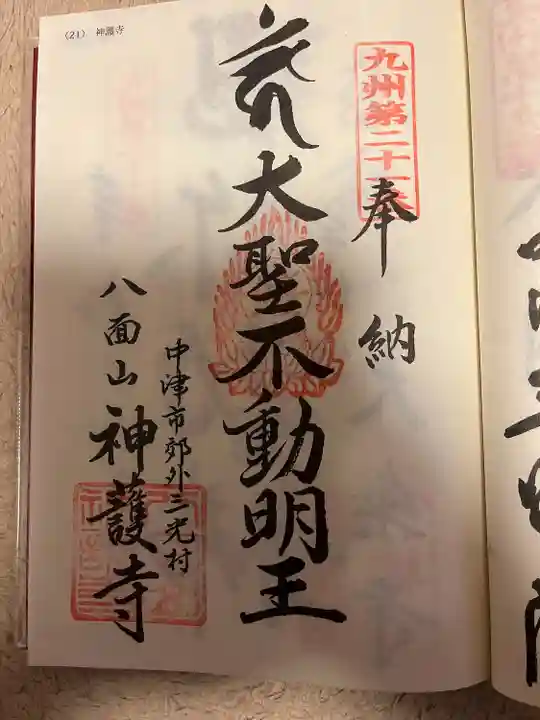 (21) 神護寺
九州第二十一番
奉納
大聖不動明王
中津市郊外三光村
八面山神護寺